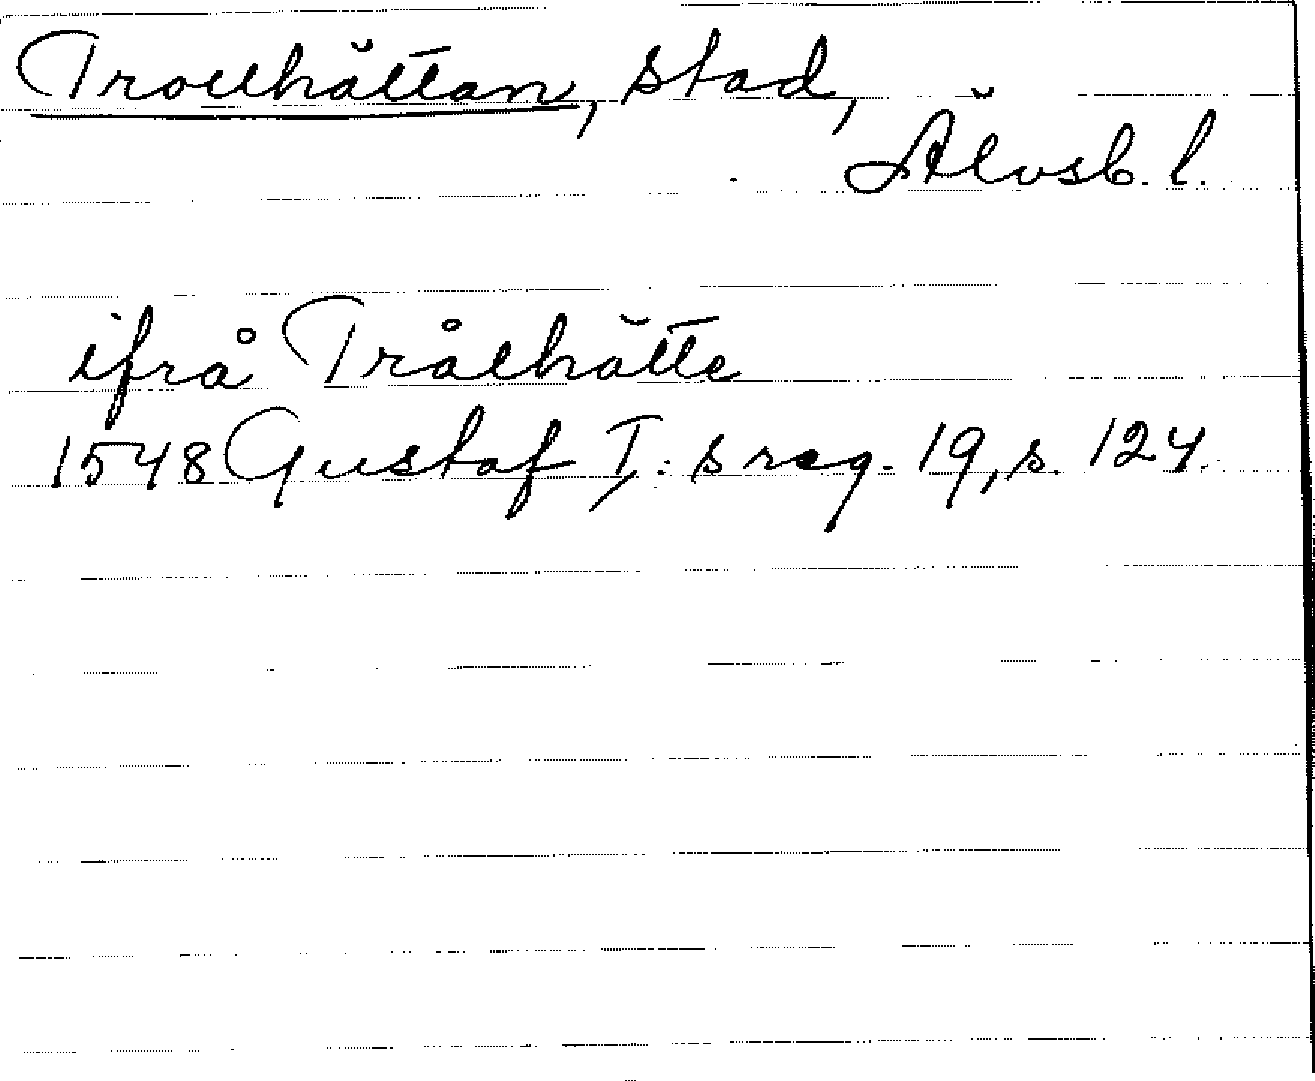 Trollhättan, stad,
Älvsb. l.
ifrå Trålhätte
1548 Gustaf I:s reg. 19, s. 124.